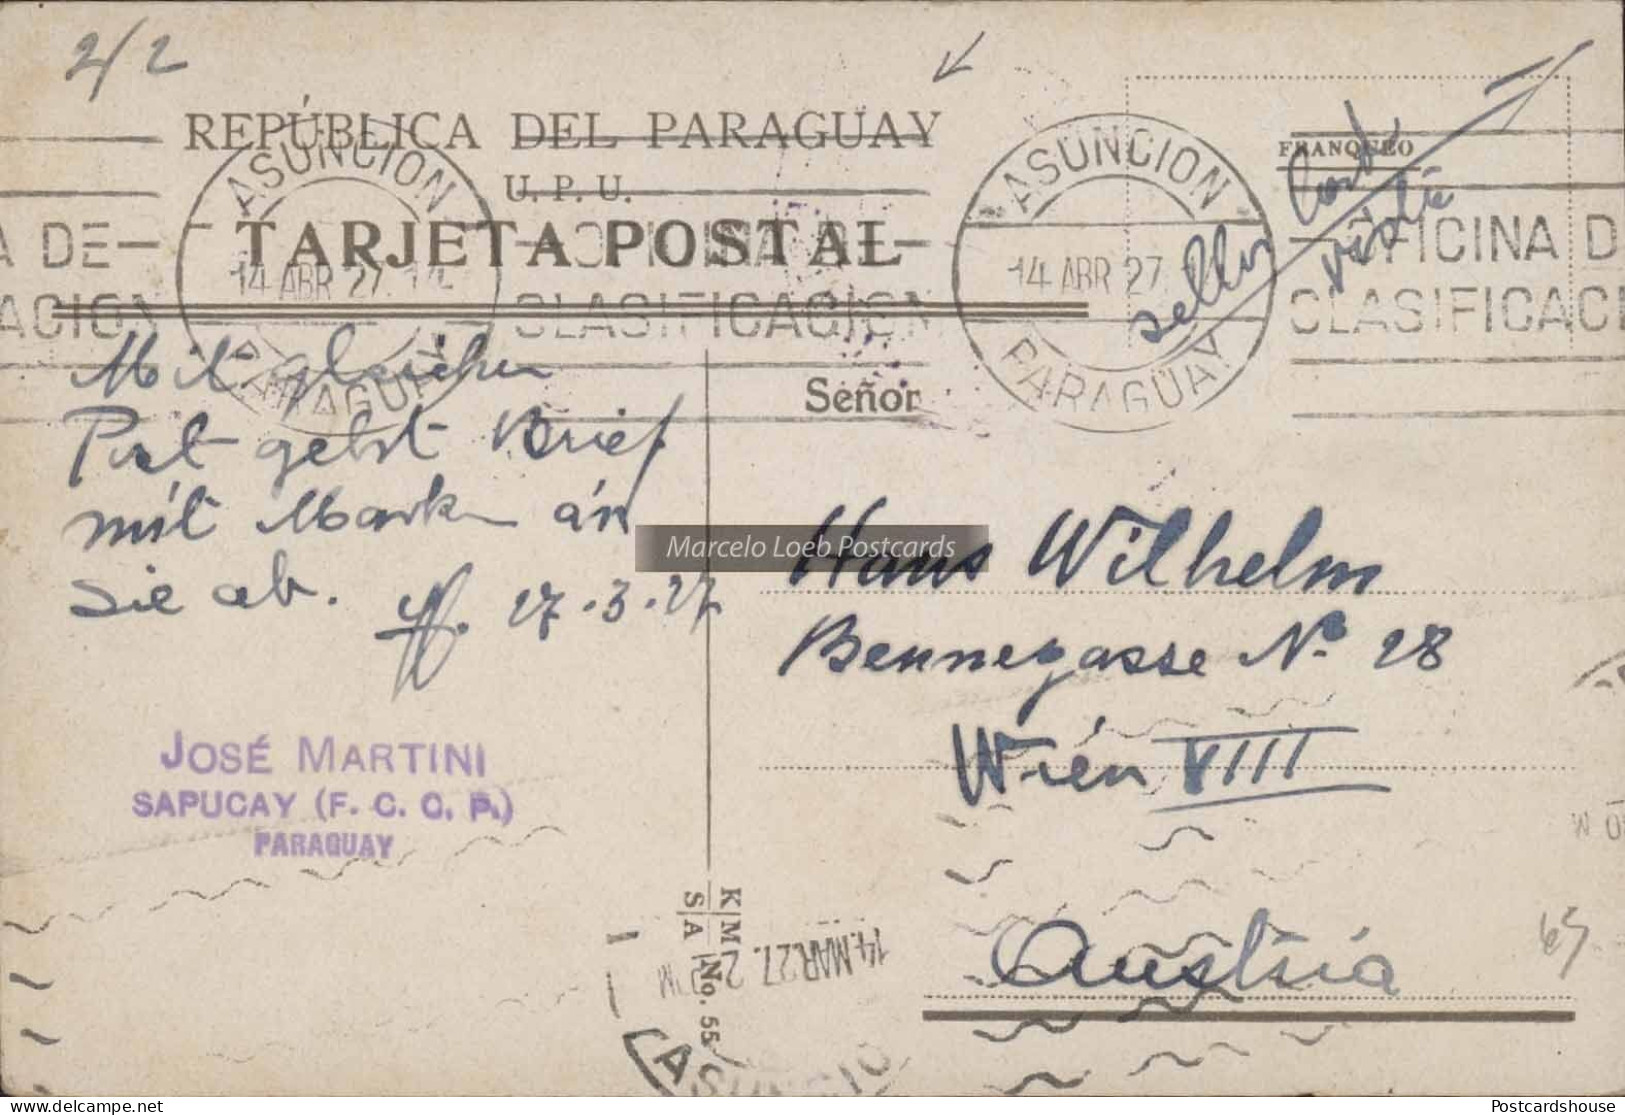 2/2
REPÚBLICA DEL PARAGUAY
U. P. U.
TARJETA POSTAL
ASUNCION
14 ABR 27
PARAGUAY
OFICINA DE
CLASIFICACION
ASUNCION
14 ABR 27
PARAGUAY
OFICINA D
CLASIFICACI
A DE
ACION
FRANQUEO
Señor
Mit gleicher
Post geht Brief
mit Marken an
Sie ab. 27.3.27
JOSÉ MARTINI
SAPUCAY (F. C. C. P.)
PARAGUAY
Hans Wilhelm
Bennegasse No 28
Wien VIII
Austria
K M
S A
No. 55
14 MAR 27. 2
ASUNCIO
Marcelo Loeb Postcards
delcampe.net
Postcardshouse